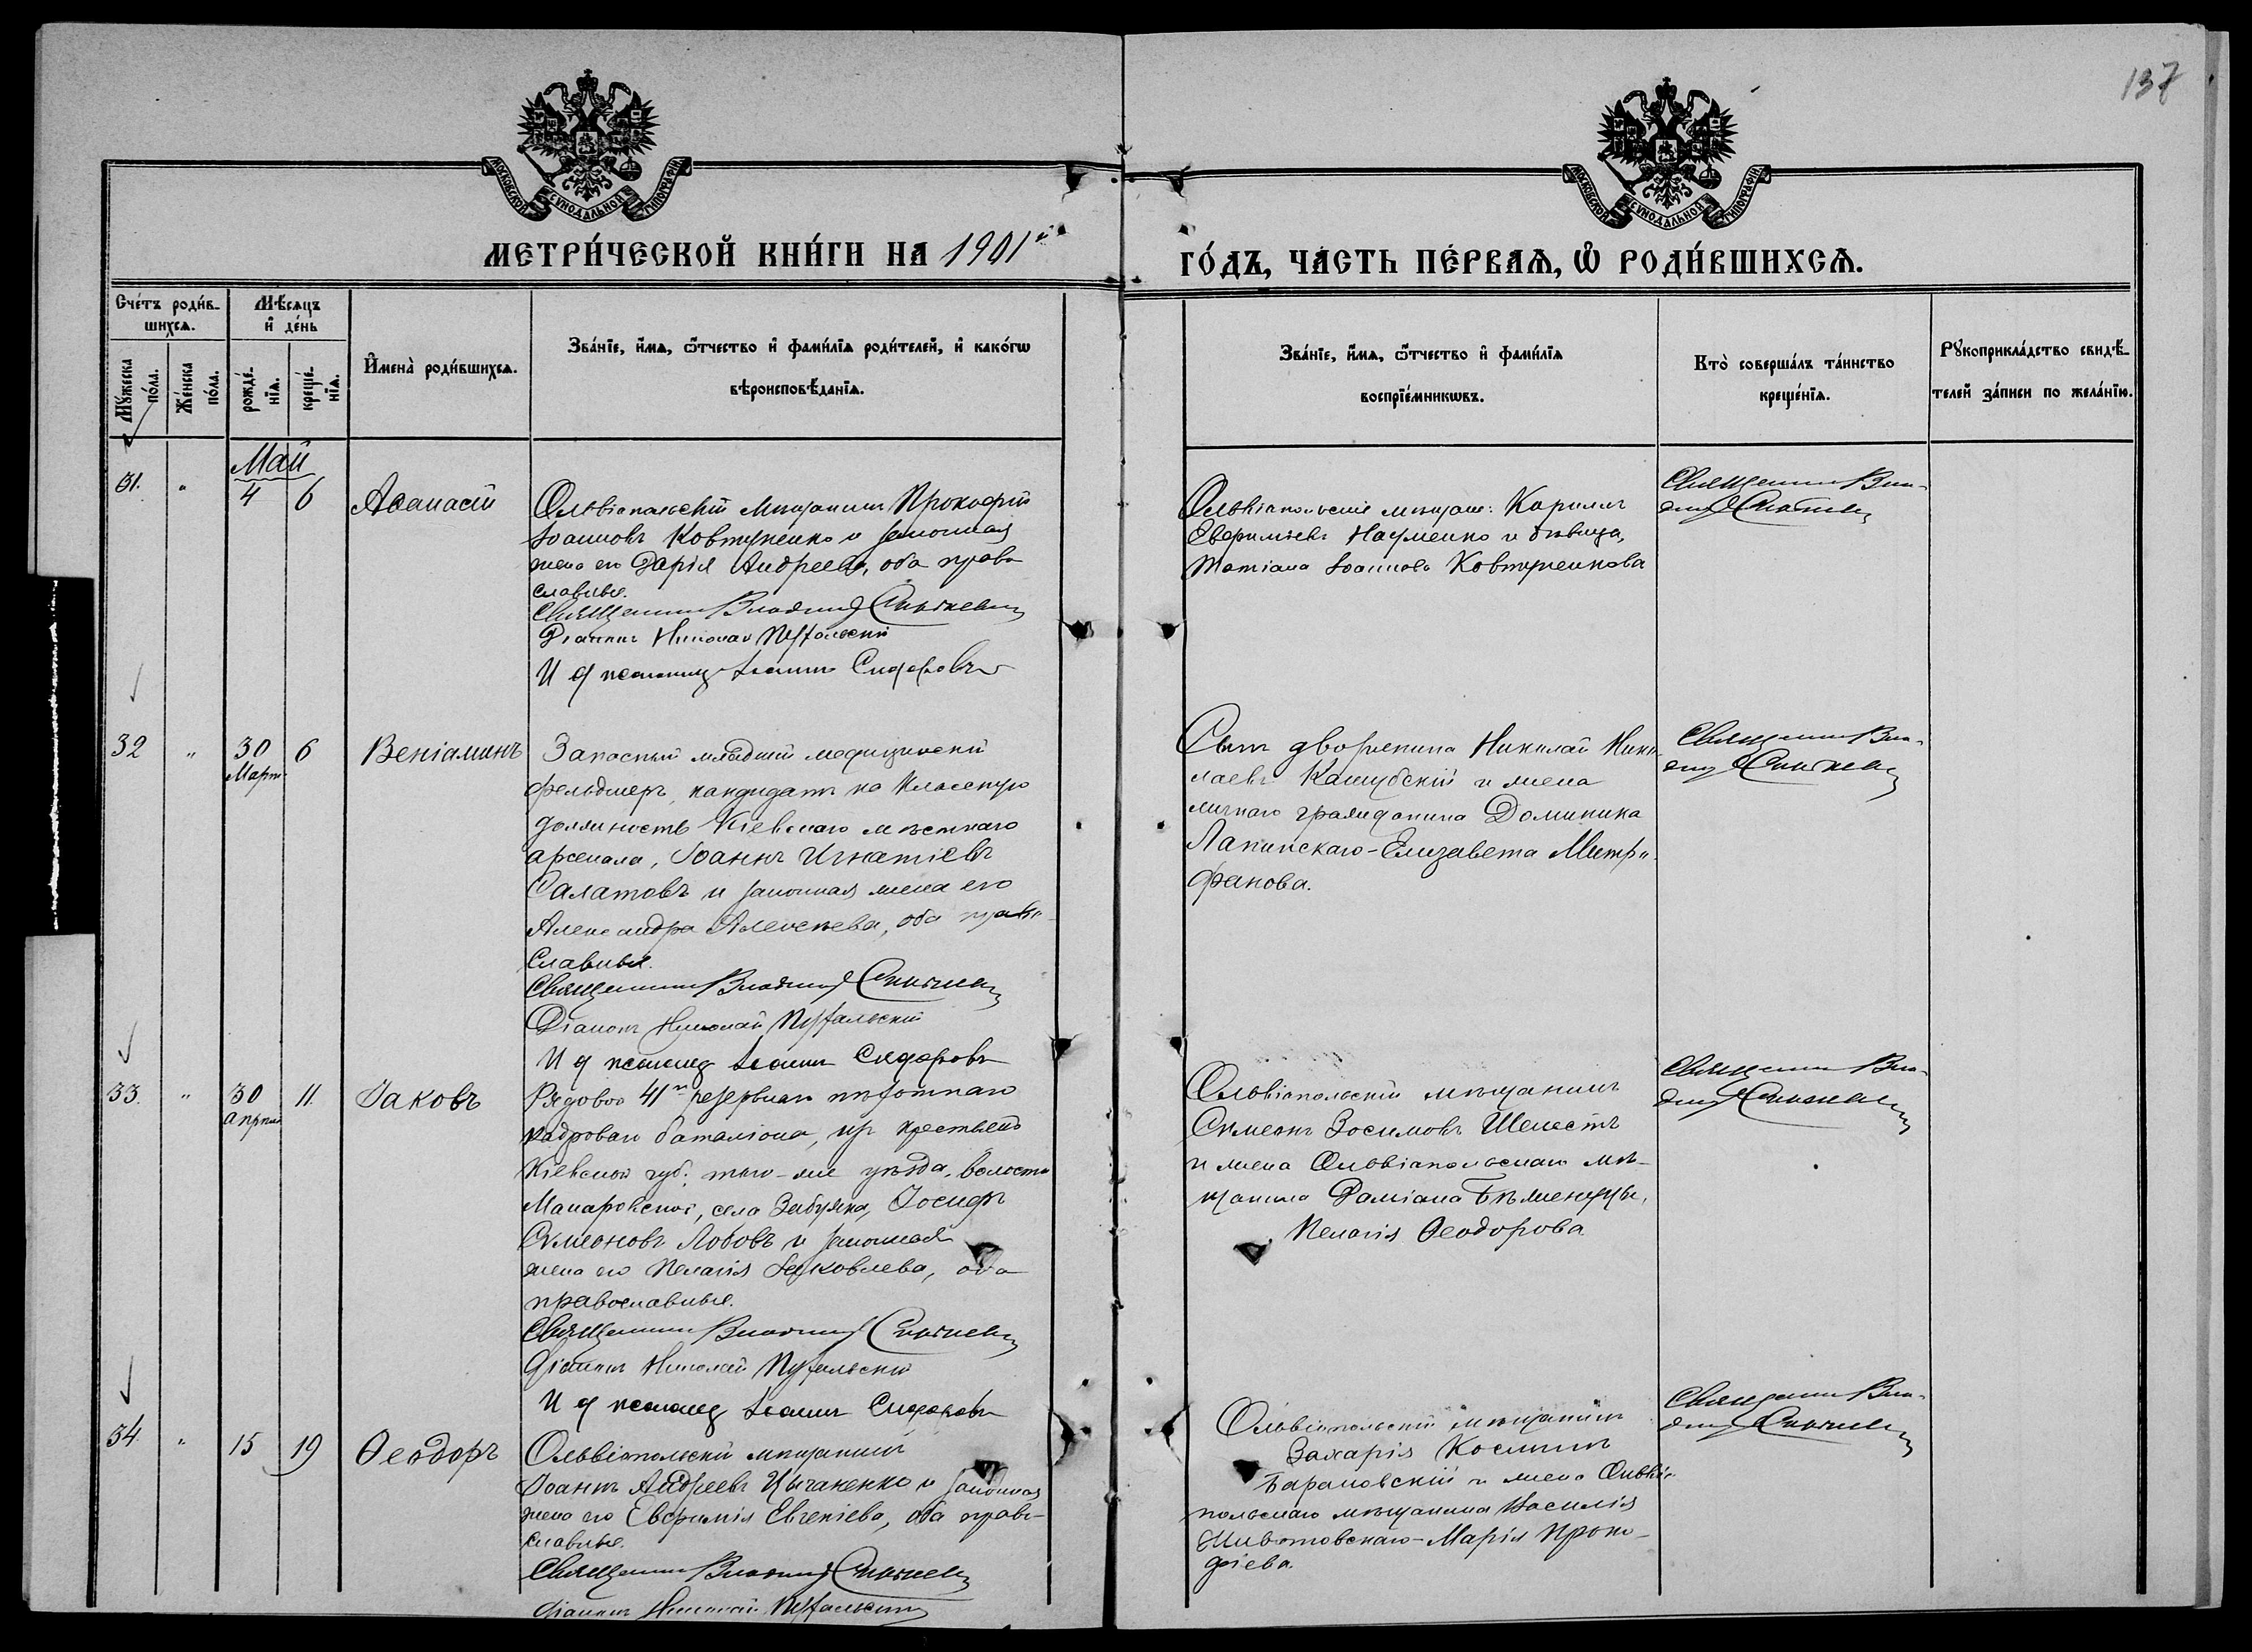 137
МОСКОВСКОЙ СѴНОДАЛЬНОЙ ТИПОГРАФІИ
МОСКОВСКОЙ СѴНОДАЛЬНОЙ ТИПОГРАФІИ
МЕТРИ́ЧЕСКОЙ КНИ́ГИ НА 1901й
ГО́ДЪ, ЧА́СТЬ ПЕ́РВАѦ, Ѡ҆ РОДИ́ВШИХСѦ.
Сче́тъ роди́в-
шихсѧ.
Мѣ́сѧцъ
и҆ де́нь
Мꙋ́жеска по́ла.
Же́нска по́ла.
рожде́-
нїѧ.
креще́-
нїѧ.
И҆мена̀ роди́вшихсѧ.
Зва́нїе, и҆́мѧ, ѻ҆́тчество и҆ фами́лїѧ роди́телей, и҆ како́гѡ
вѣроисповѣ́данїѧ.
Зва́нїе, и҆́мѧ, ѻ҆́тчество и҆ фами́лїѧ
воспрїе́мникѡвъ.
Кто̀ соверша́лъ та́инство
креще́нїѧ.
Рꙋкоприкла́дство свидѣ́-
телей за́писи по жела́нїю.
Май
31. " 4 6 Аѳанасій
Ольвіопольскій мѣщанинъ Прокофій
Іоанновъ Ковтуненко и законная
жена его Дарія Андреева, оба право
славные.
Священникъ Владимір
Діаконъ Николай
И д псаломщ Іоаннъ Сидоровъ
Ольвіопольскіе мѣщане: Кириллъ
Евфиміевъ Науменко и дѣвица,
Татіана Іоаннова Ковтуненкова
Священникъ Вла-
дим
32 " 30 6 Веніаминъ
Март
Запасный младшій медицинскій
фельдшеръ, кандидатъ на классную
должность Кіевскаго мѣстнаго
арсенала, Іоаннъ Игнатіевъ
Салатовъ и законная жена его
Александра Алексѣева, оба право
славные.
Священникъ Владимір
Діаконъ Николай
И д псаломщ Іоаннъ Сидоровъ
Сынъ дворянина Николай Нико
лаевъ Кашубскій и жена
личнаго гражданина Доминика
Лапинскаго-Елизавета Митро
фанова.
Священникъ Вла-
дим
33. " 30 11. Іаковъ
апрѣля
Рядовой 41го резервнаго пѣхотнаго
кадроваго баталіона, изъ крестьянъ
Кіевской губ. того-же уѣзда, волости
Макаровской, села Забуянья, Іосифъ
Симеоновъ Лобовъ и законная
жена его Пелагія Іаковлева, оба
православные.
Священникъ Владимір
Діаконъ Николай
И д псаломщ Іоаннъ Сидоровъ
Ольвіопольскій мѣщанинъ
Симеонъ Зосимовъ Шелестъ
и жена Ольвіопольскаго мѣ-
щанина Даміана
Пелагія Ѳеодорова
Священникъ Вла-
дим
34. " 15 19 Ѳеодоръ
Ольвіопольскій мѣщанинъ
Іоаннъ Андреевъ Цыганенко и законная
жена его Евфимія Евгеніева, оба право-
славные.
Священникъ Владимір
Діаконъ Николай
Ольвіопольскій мѣщанинъ
Захарія Косминъ
Барановскій и жена Ольвіо-
польскаго мѣщанина Василія
Животовскаго-Марія Проко-
фіева.
Священникъ Вла-
дим